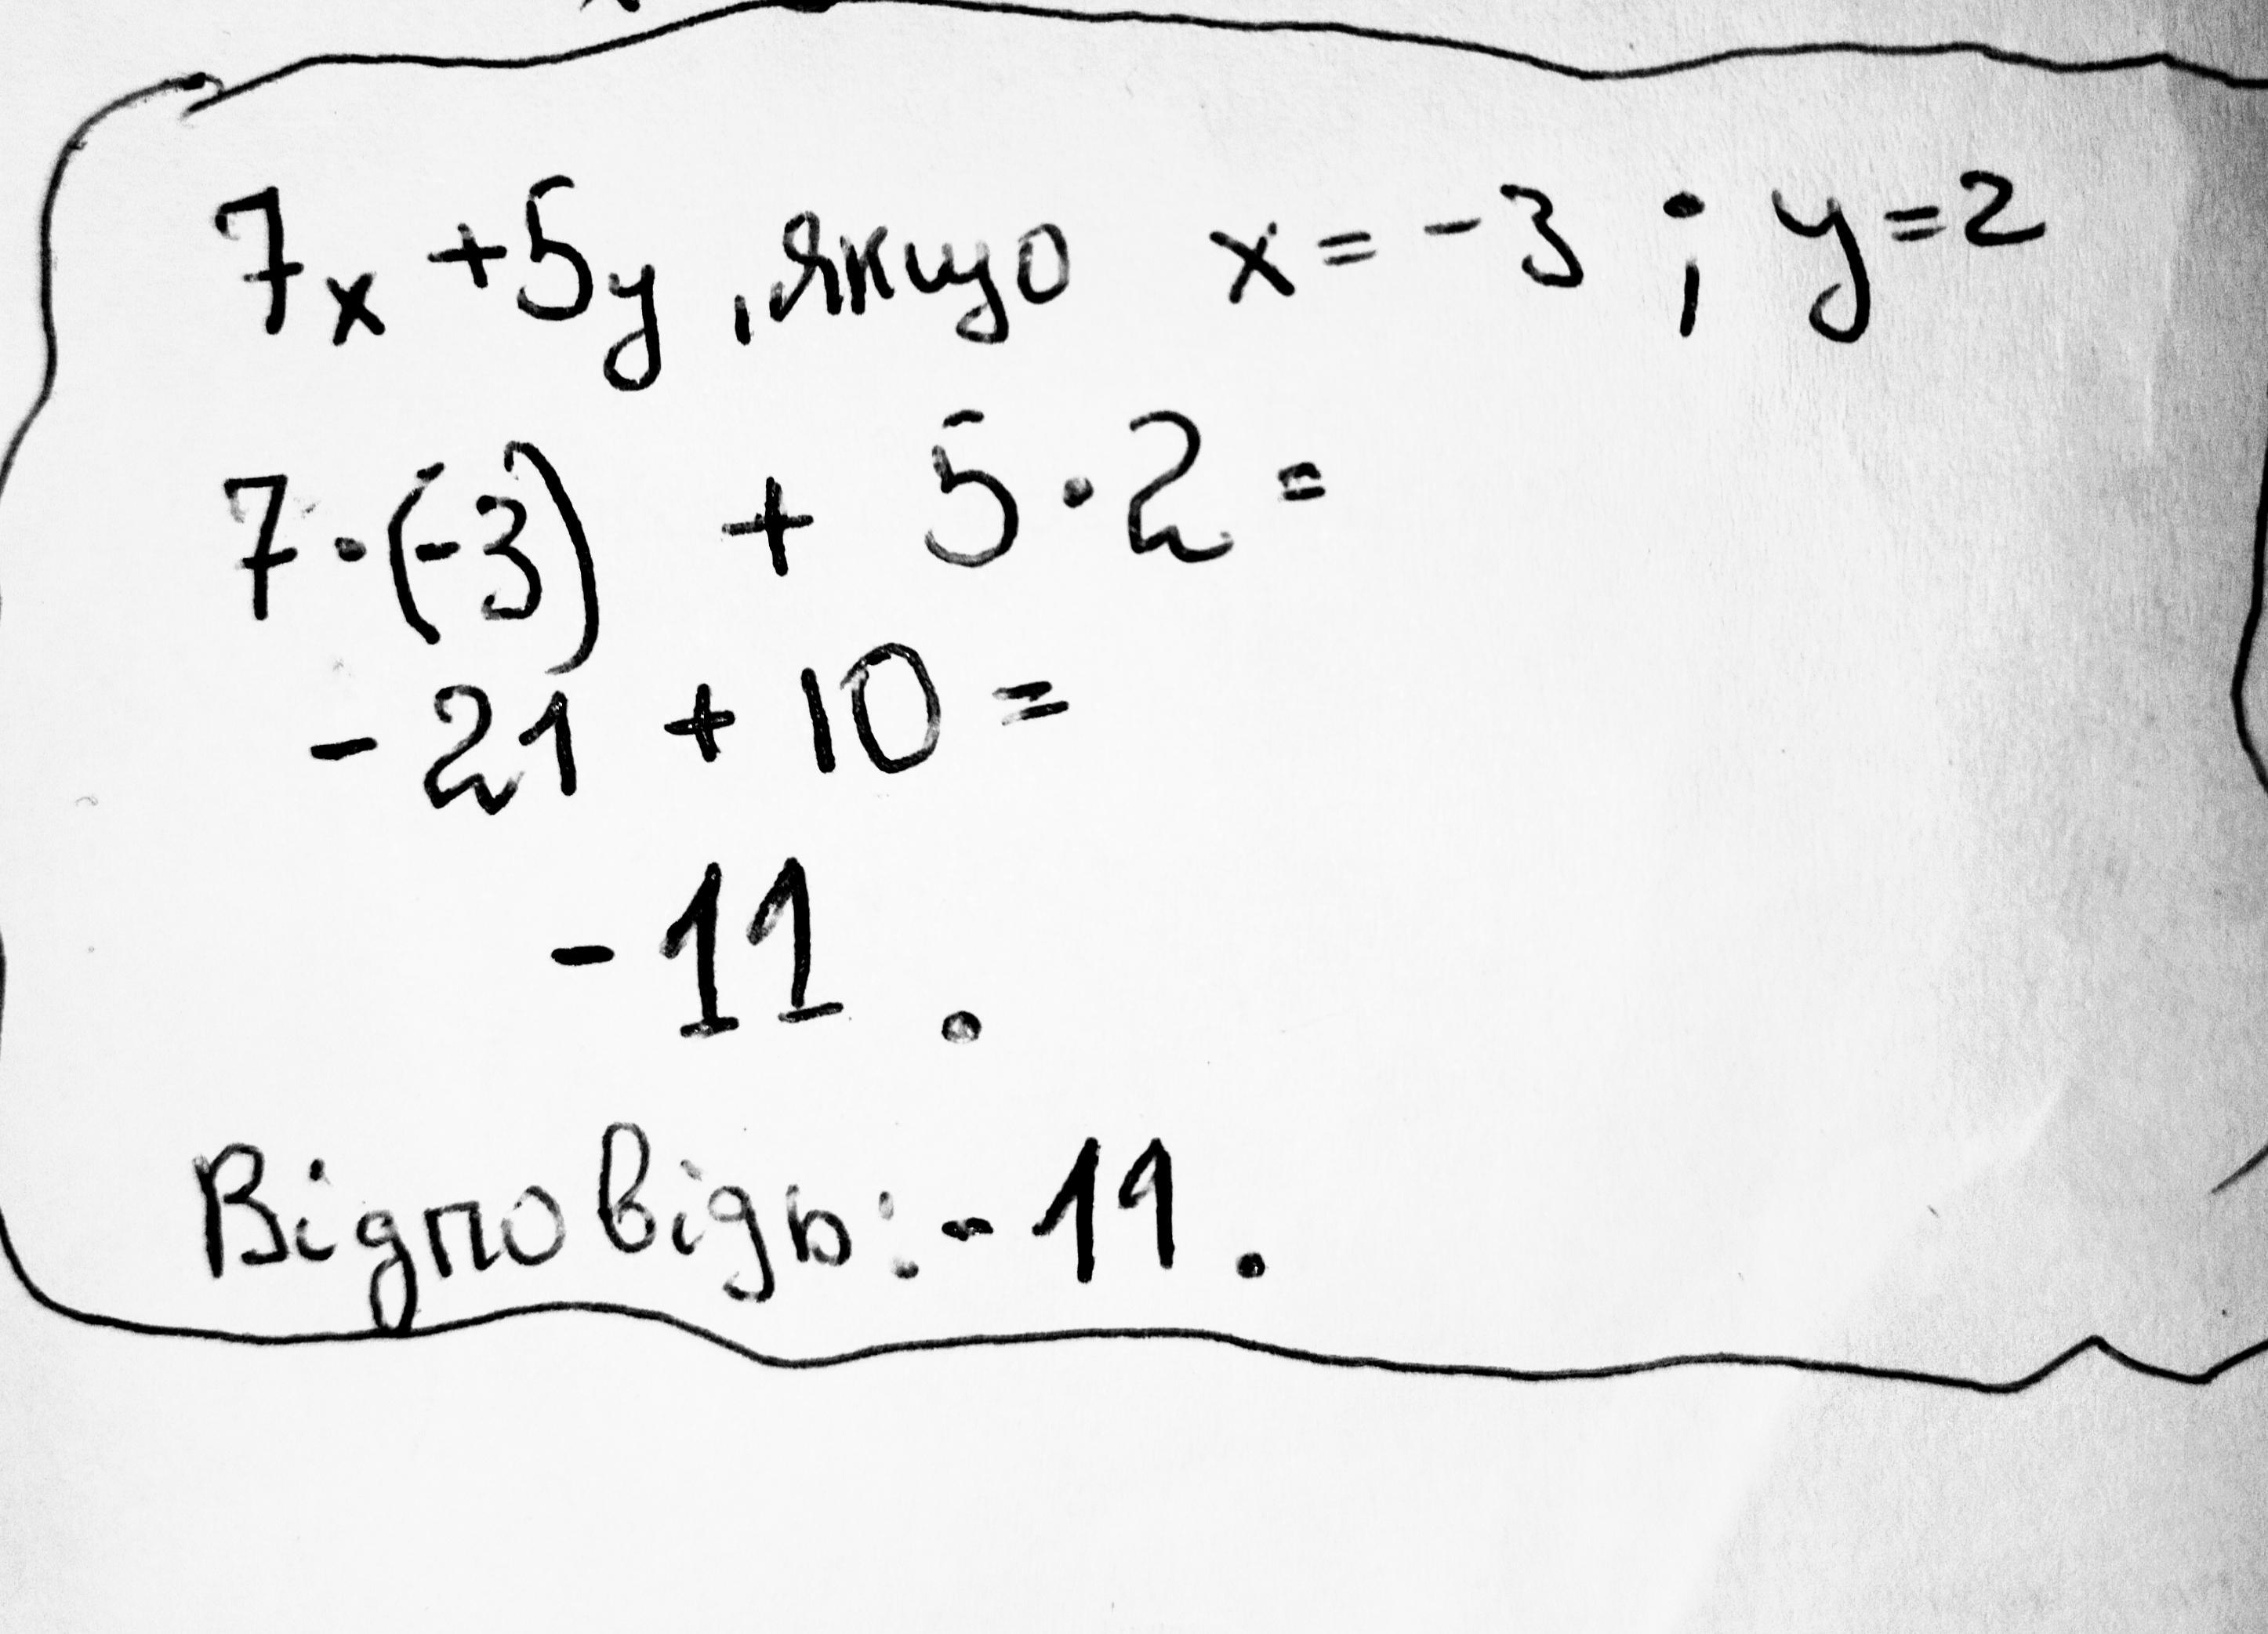 7x + 5y, якщо x = -3 ; y = 2
7 · (-3) + 5 · 2 =
- 21 + 10 =
- 11 .
Відповідь: - 11 .